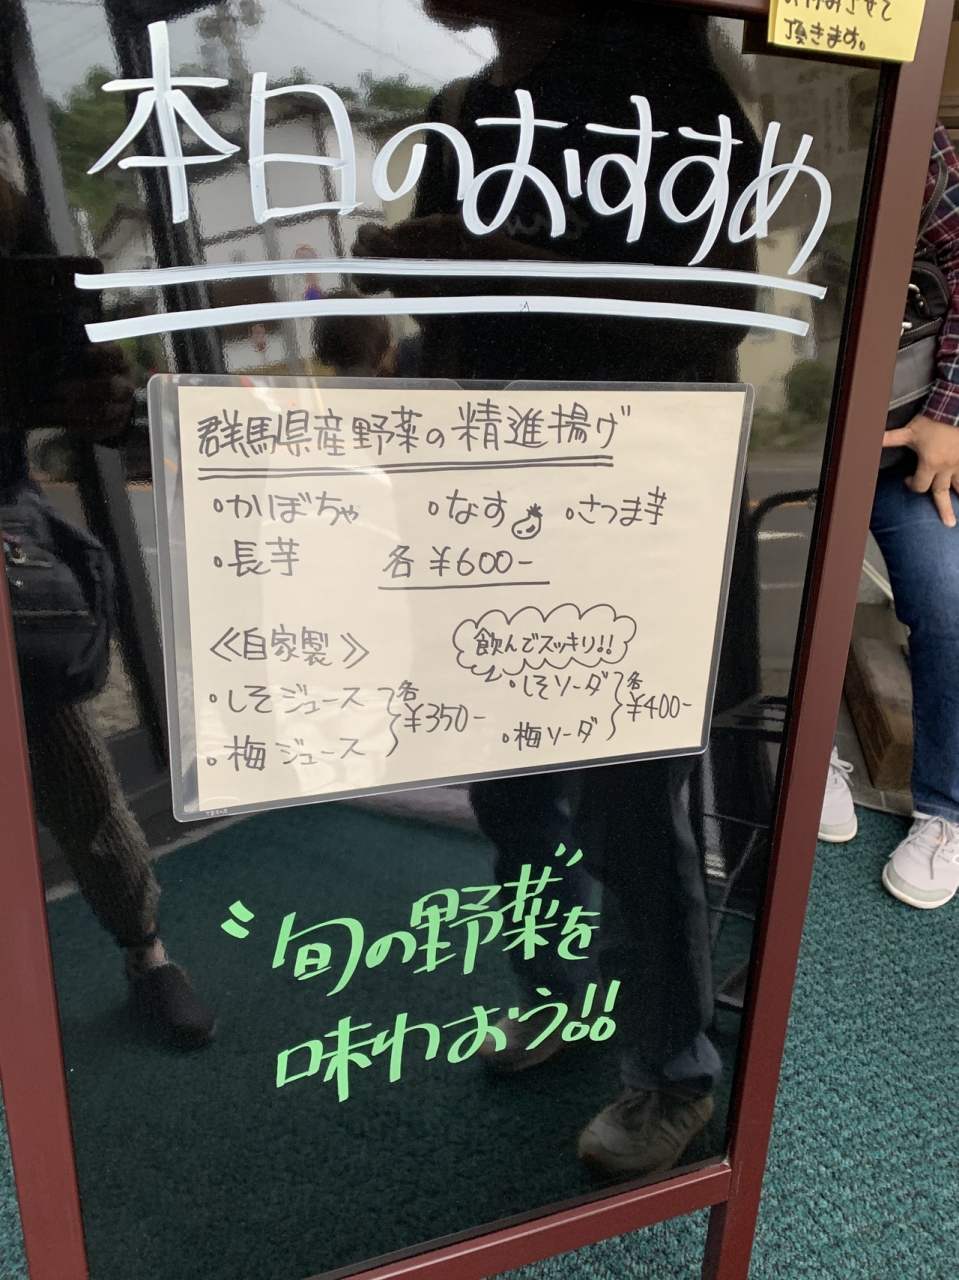 頂きます。
本日のおすすめ
群馬県産野菜の精進揚げ
・かぼちゃ ・なす ・さつま芋
・長芋 各¥600-
≪自家製≫ 飲んでスッキリ!!
・しそジュース ・しそソーダ
各¥350- 各¥400-
・梅ジュース ・梅ソーダ
〝旬の野菜〟を
味わおう!!